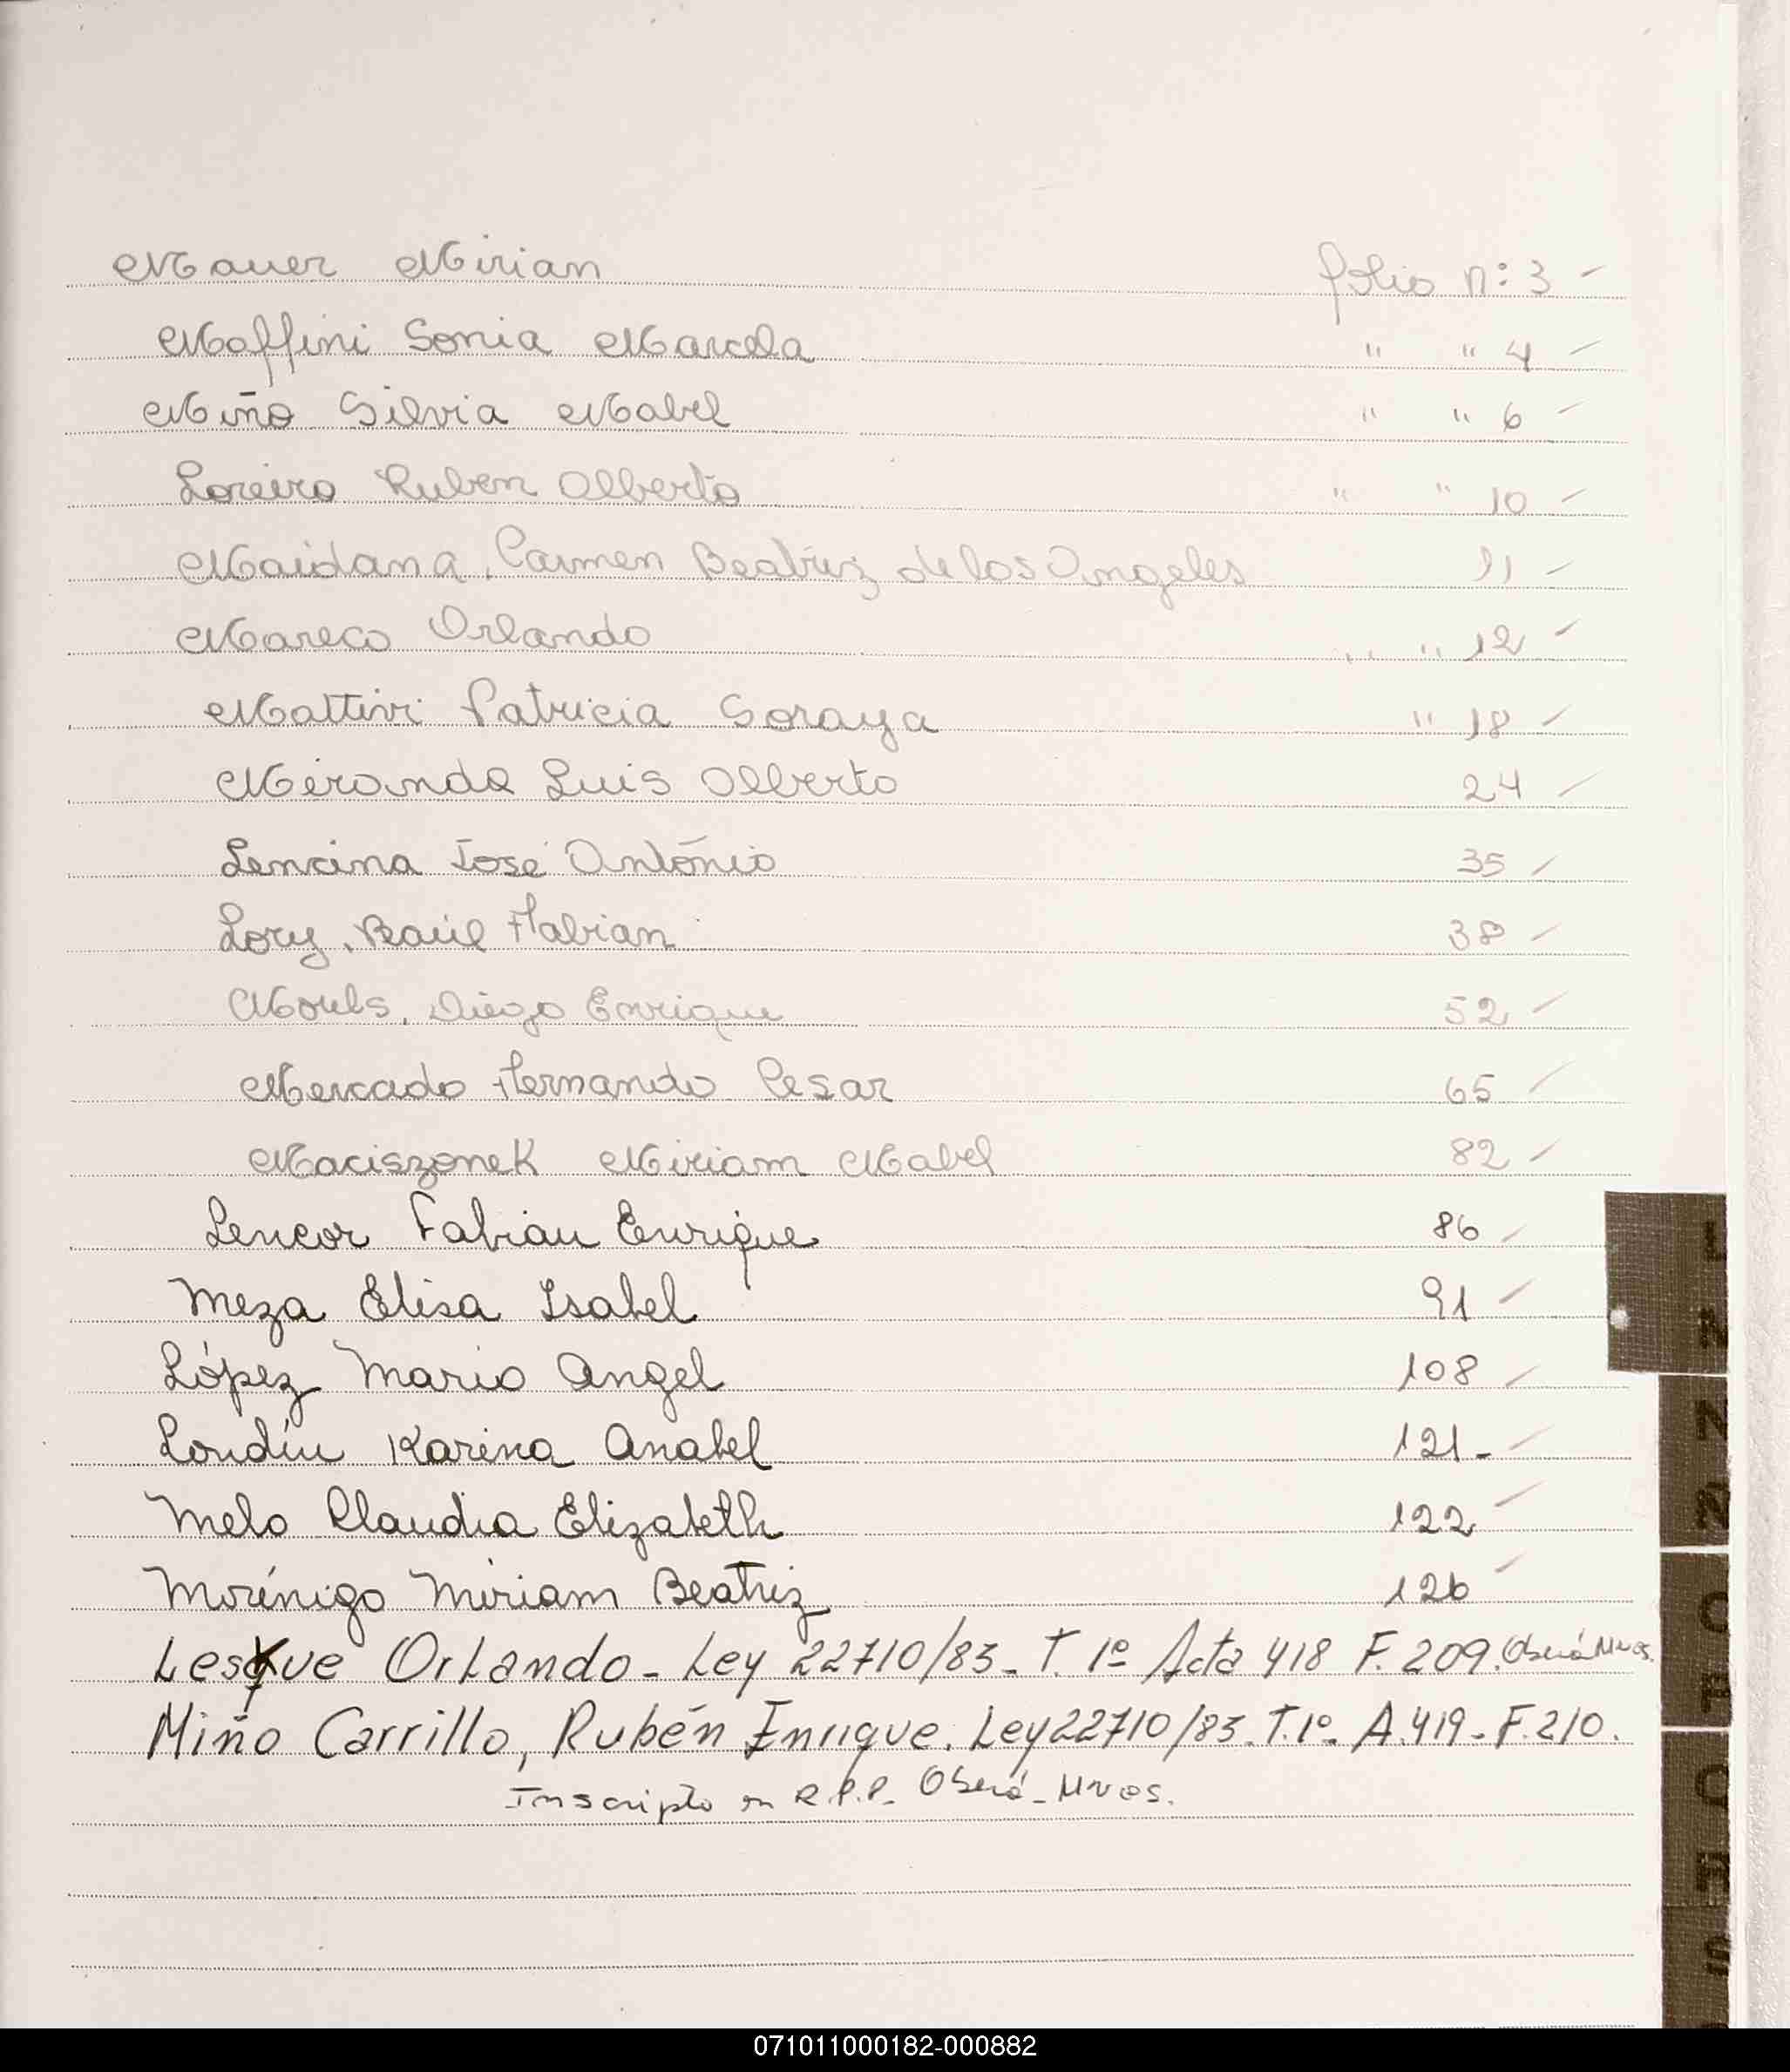 Mauer Mirian folio n: 3 -
Maffini Sonia Marcela " " 4 -
Miño Silvia Mabel " " 6 -
Loreiro Ruben Alberto " " 10 -
Maidana, Carmen Beatriz de los Angeles 11 -
Mareco Orlando " " 12 -
Mattivi Patricia Soraya " 18 -
Miranda Luis Alberto 24 -
Lencina José António 35 -
Lory, Raúl Fabian 38 -
Diego Enrique 52 -
Mercado Hernando Cesar 65 -
Maciszonek Miriam Mabel 82 -
Lencor Fabian Enrique 86 -
Meza Elisa Isabel 91 -
López Mario Angel 108 -
Londin Karina Anabel 121 - -
Melo Claudia Elizabeth 122 -
Morínigo Miriam Beatriz 126 -
Lesque Orlando - Ley 22710/83 - T. 1º Acta 418 F. 209. Oberá Mnes.
Miño Carrillo, Rubén Enrique. Ley 22710/83 - T. 1º - A. 419 - F. 210.
Inscripto en R.P.P. Oberá - Mnes.
L
M
N
Ñ
O
P
Q
R
S
071011000182-000882